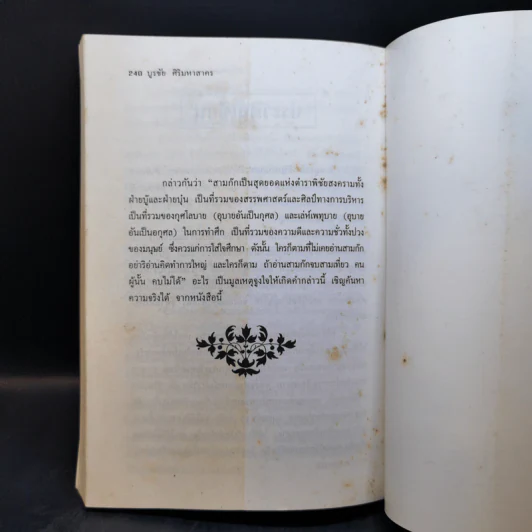 240 บูรชัย ศิริมหาสาคร
กล่าวกันว่า “สามก๊กเป็นสุดยอดแห่งตำราพิชัยสงครามทั้ง
ฝ่ายบู๊และฝ่ายบุ๋น เป็นที่รวมของสรรพศาสตร์และศิลป์ทางการบริหาร
เป็นที่รวมของกุศโลบาย (อุบายอันเป็นกุศล) และเล่ห์เพทุบาย (อุบาย
อันเป็นอกุศล) ในการทำศึก เป็นที่รวมของความดีและความชั่วทั้งปวง
ของมนุษย์ ซึ่งควรแก่การใส่ใจศึกษา ดังนั้น ใครก็ตามที่ไม่เคยอ่านสามก๊ก
อย่าริอ่านคิดทำการใหญ่ และใครก็ตาม ถ้าอ่านสามก๊กจบสามเที่ยว คน
ผู้นั้น คบไม่ได้” อะไร เป็นมูลเหตุจูงใจให้เกิดคำกล่าวนี้ เชิญค้นหา
ความจริงได้ จากหนังสือนี้